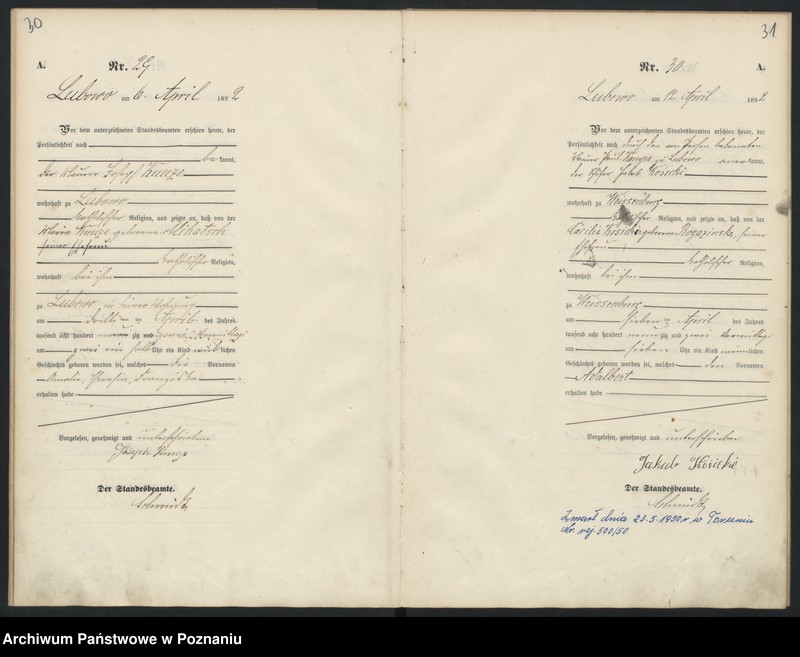 30
A.
Nr. 29
Lubowo am 6. April 1892
Vor dem unterzeichneten Standesbeamten erschien heute, der
Persönlichkeit nach
be kannt,
der Joseph Kunze
wohnhaft zu Lubowo
katholischer Religion, und zeigte an, daß von der
Maria Kunze geborene
seiner Ehefrau
katholischer Religion,
wohnhaft bei ihm
zu Lubowo in seiner Wohnung
am dritten April des Jahres
tausend acht hundert neunzig und zwei Vormittags
um zwei ein halb Uhr ein Kind weiblichen
Geschlechts geboren worden sei, welches die Vornamen
Theresia, Franziska
erhalten habe
Vorgelesen, genehmigt und unterschrieben
Joseph Kunze
Der Standesbeamte.
Schmidt
31
Nr. 30
A.
Lubowo am 12. April 1892
Vor dem unterzeichneten Standesbeamten erschien heute, der
Persönlichkeit nach durch den von Person bekannten
Paul Kunze zu Lubowo anerkannt,
der Jakob Kosicki
wohnhaft zu Weissenburg
katholischer Religion, und zeigte an, daß von der
Caecilia Kosicki geborene Rogazinska, seiner
Ehefrau
katholischer Religion,
wohnhaft bei ihm
zu Weissenburg
am sieben April des Jahres
tausend acht hundert neunzig und zwei Vormittags
um sieben Uhr ein Kind männlichen
Geschlechts geboren worden sei, welches den Vornamen
Adalbert
erhalten habe
Vorgelesen, genehmigt und unterschrieben
Jakub Kosicki
Der Standesbeamte.
Schmidt
Zmarł dnia 23.5.1950 r. w Toruniu
Nr. rej. 500/50
Archiwum Państwowe w Poznaniu